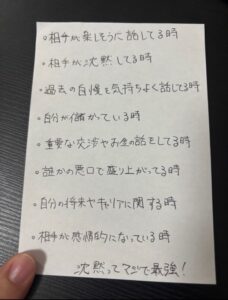 ・相手が楽しそうに話してる時
・相手が沈黙してる時
・過去の自慢を気持ちよく話してる時
・自分が儲かっている時
・重要な交渉やお金の話をしてる時
・誰かの悪口で盛り上がってる時
・自分の将来やキャリアに関する時
・相手が感情的になっている時
沈黙ってマジで最強!